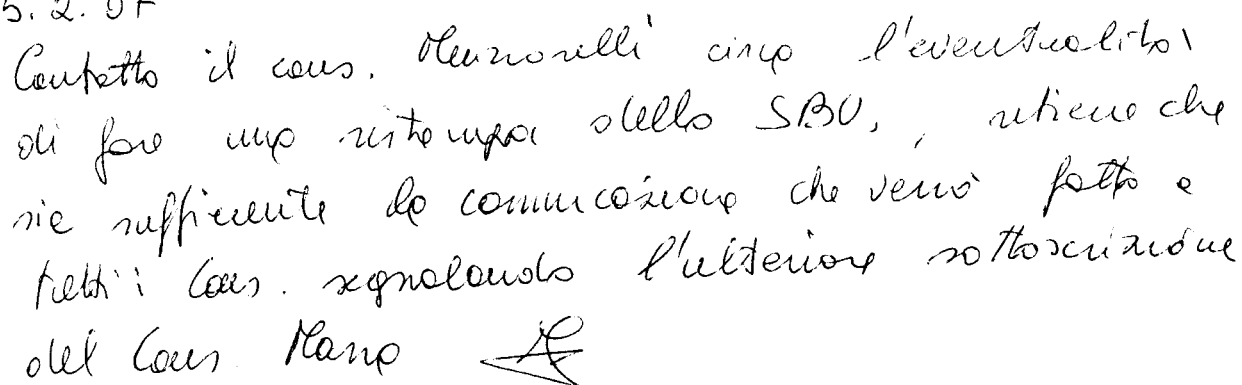 5.2.07
Contatto il cons. circa l'eventualità
di fare una ristampa dello SBU, ritiene che
sia sufficiente la comunicazione che verrà fatta a
tutti i Cons. segnalando l'ulteriore sottoscrizione
del Cons.